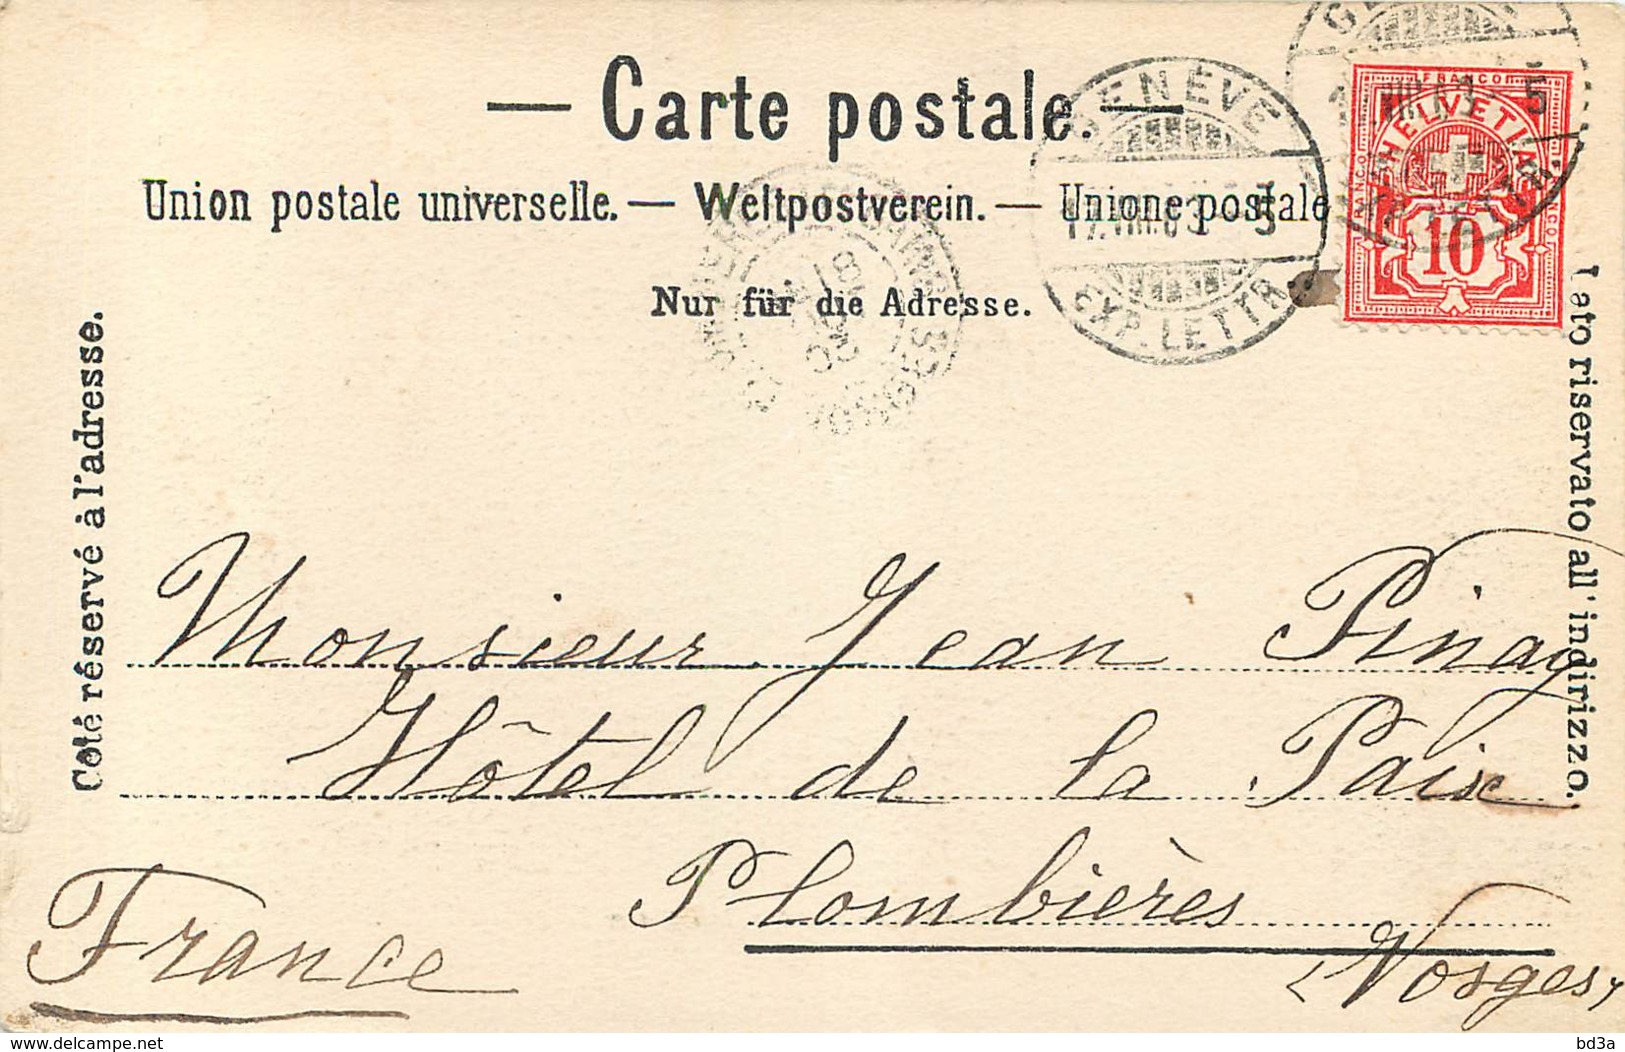 — Carte postale. —
Union postale universelle. — Weltpostverein. — Unione postale
Nur für die Adresse.
Côté réservé à l'adresse.
Lato riservato all' indirizzo.
GENÈVE
EXP. LETTR.
FRANCO
HELVETIA
10
Monsieur Jean Pinay
Hôtel de la Paix
Plombières
(Vosges)
France
delcampe.net
bd3a